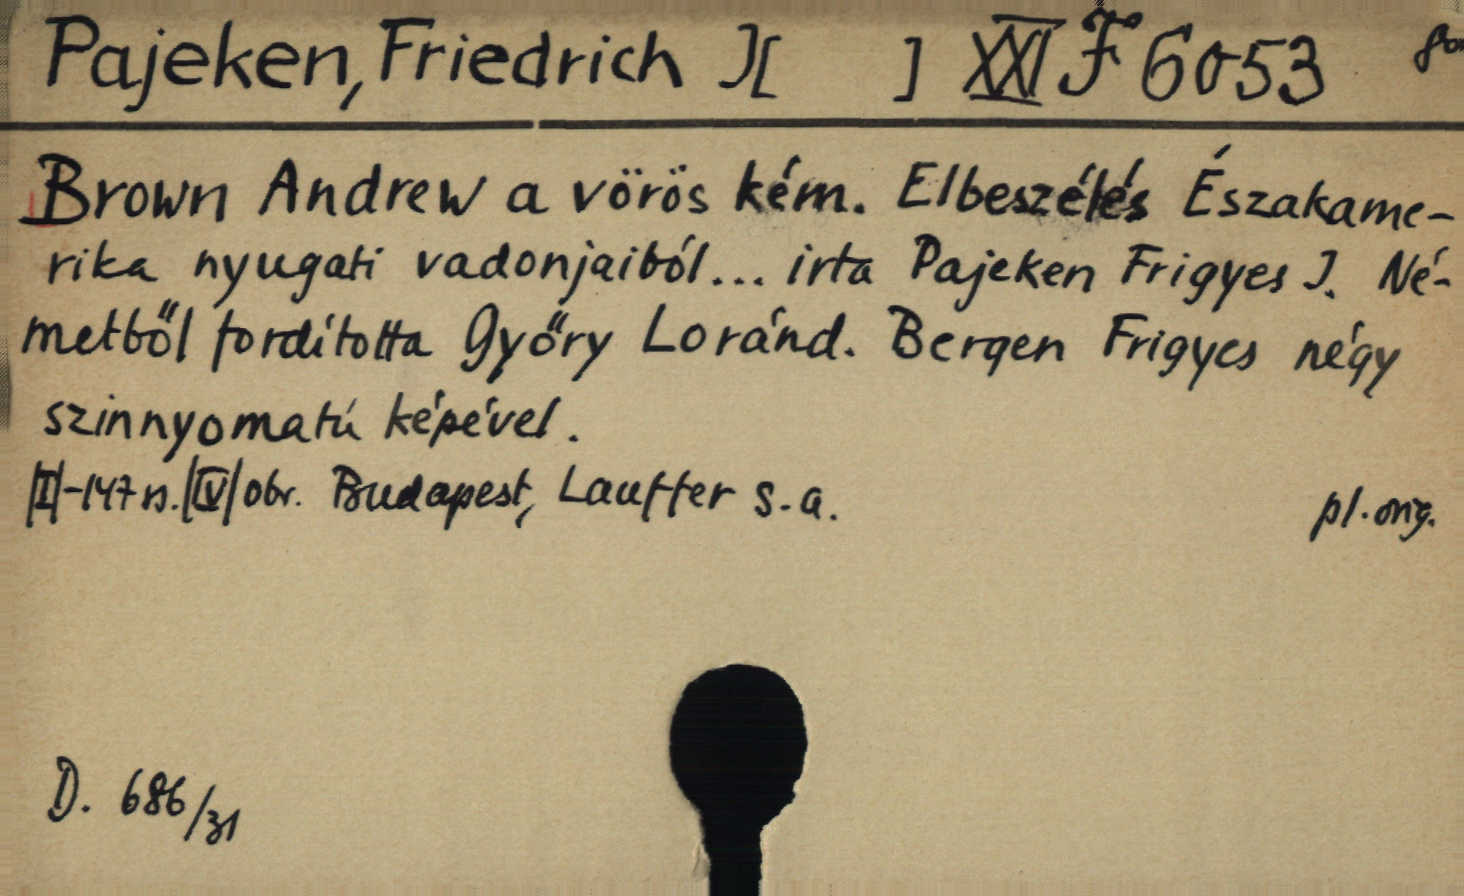 Pajeken, Friedrich J[ ] XXI F 6053
Brown Andrew a vörös kém. Elbeszélés Északame-
rika nyugati vadonjaiból... irta Pajeken Frigyes J. Né-
metből fordította Győry Loránd. Bergen Frigyes négy
szinnyomatú képével.
|I|-147 rs. |IV| obr. Budapest, Lauffer s.a. pl. orig.
D. 686/31